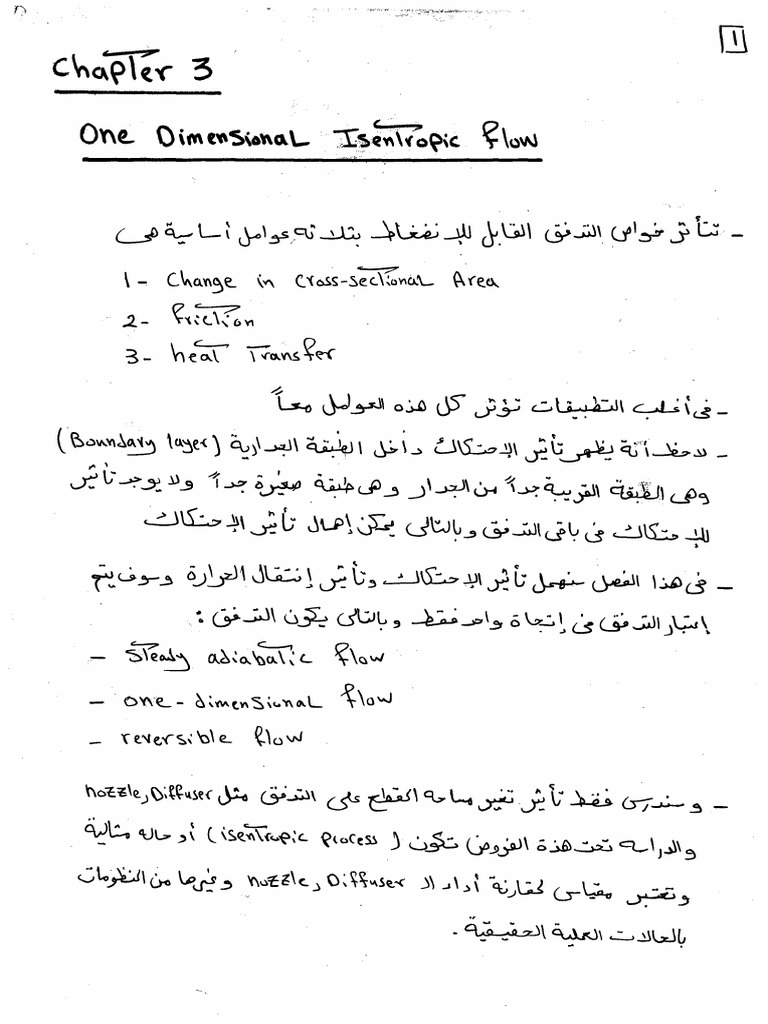 1
Chapter 3
One Dimensional Isentropic flow
- تتأثر خواص التدفق القابل للإنضغاط بثلاثة عوامل أساسية هى
1- Change in cross-sectional Area
2- friction
3- heat Transfer
- فى أغلب التطبيقات تؤثر كل هذه العوامل معاً
- لاحظ أنة يظهر تأثير الإحتكاك داخل الطبقة الجدارية (Boundary layer)
وهى الطبقة القريبة جداً من الجدار وهى طبقة صغيرة جداً ولا يوجد تأثير
للإحتكاك فى باقى التدفق وبالتالى يمكن إهمال تأثير الإحتكاك
- فى هذا الفصل سنهمل تأثير الإحتكاك وتأثير إنتقال الحرارة وسوف يتم
إعتبار التدفق فى إتجاة واحد فقط وبالتالى يكون التدفق :
- steady adiabatic flow
- one-dimensional flow
- reversible flow
- وسندرس فقط تأثير تغير مساحه المقطع على التدفق مثل nozzle, Diffuser
والدراسه تحت هذة الفروض تكون (isentropic process) أو حاله مثالية
وتعتبر مقياس لمقارنة أداء الـ nozzle, Diffuser وغيرها من المنظومات
بالحالات العملية الحقيقية .